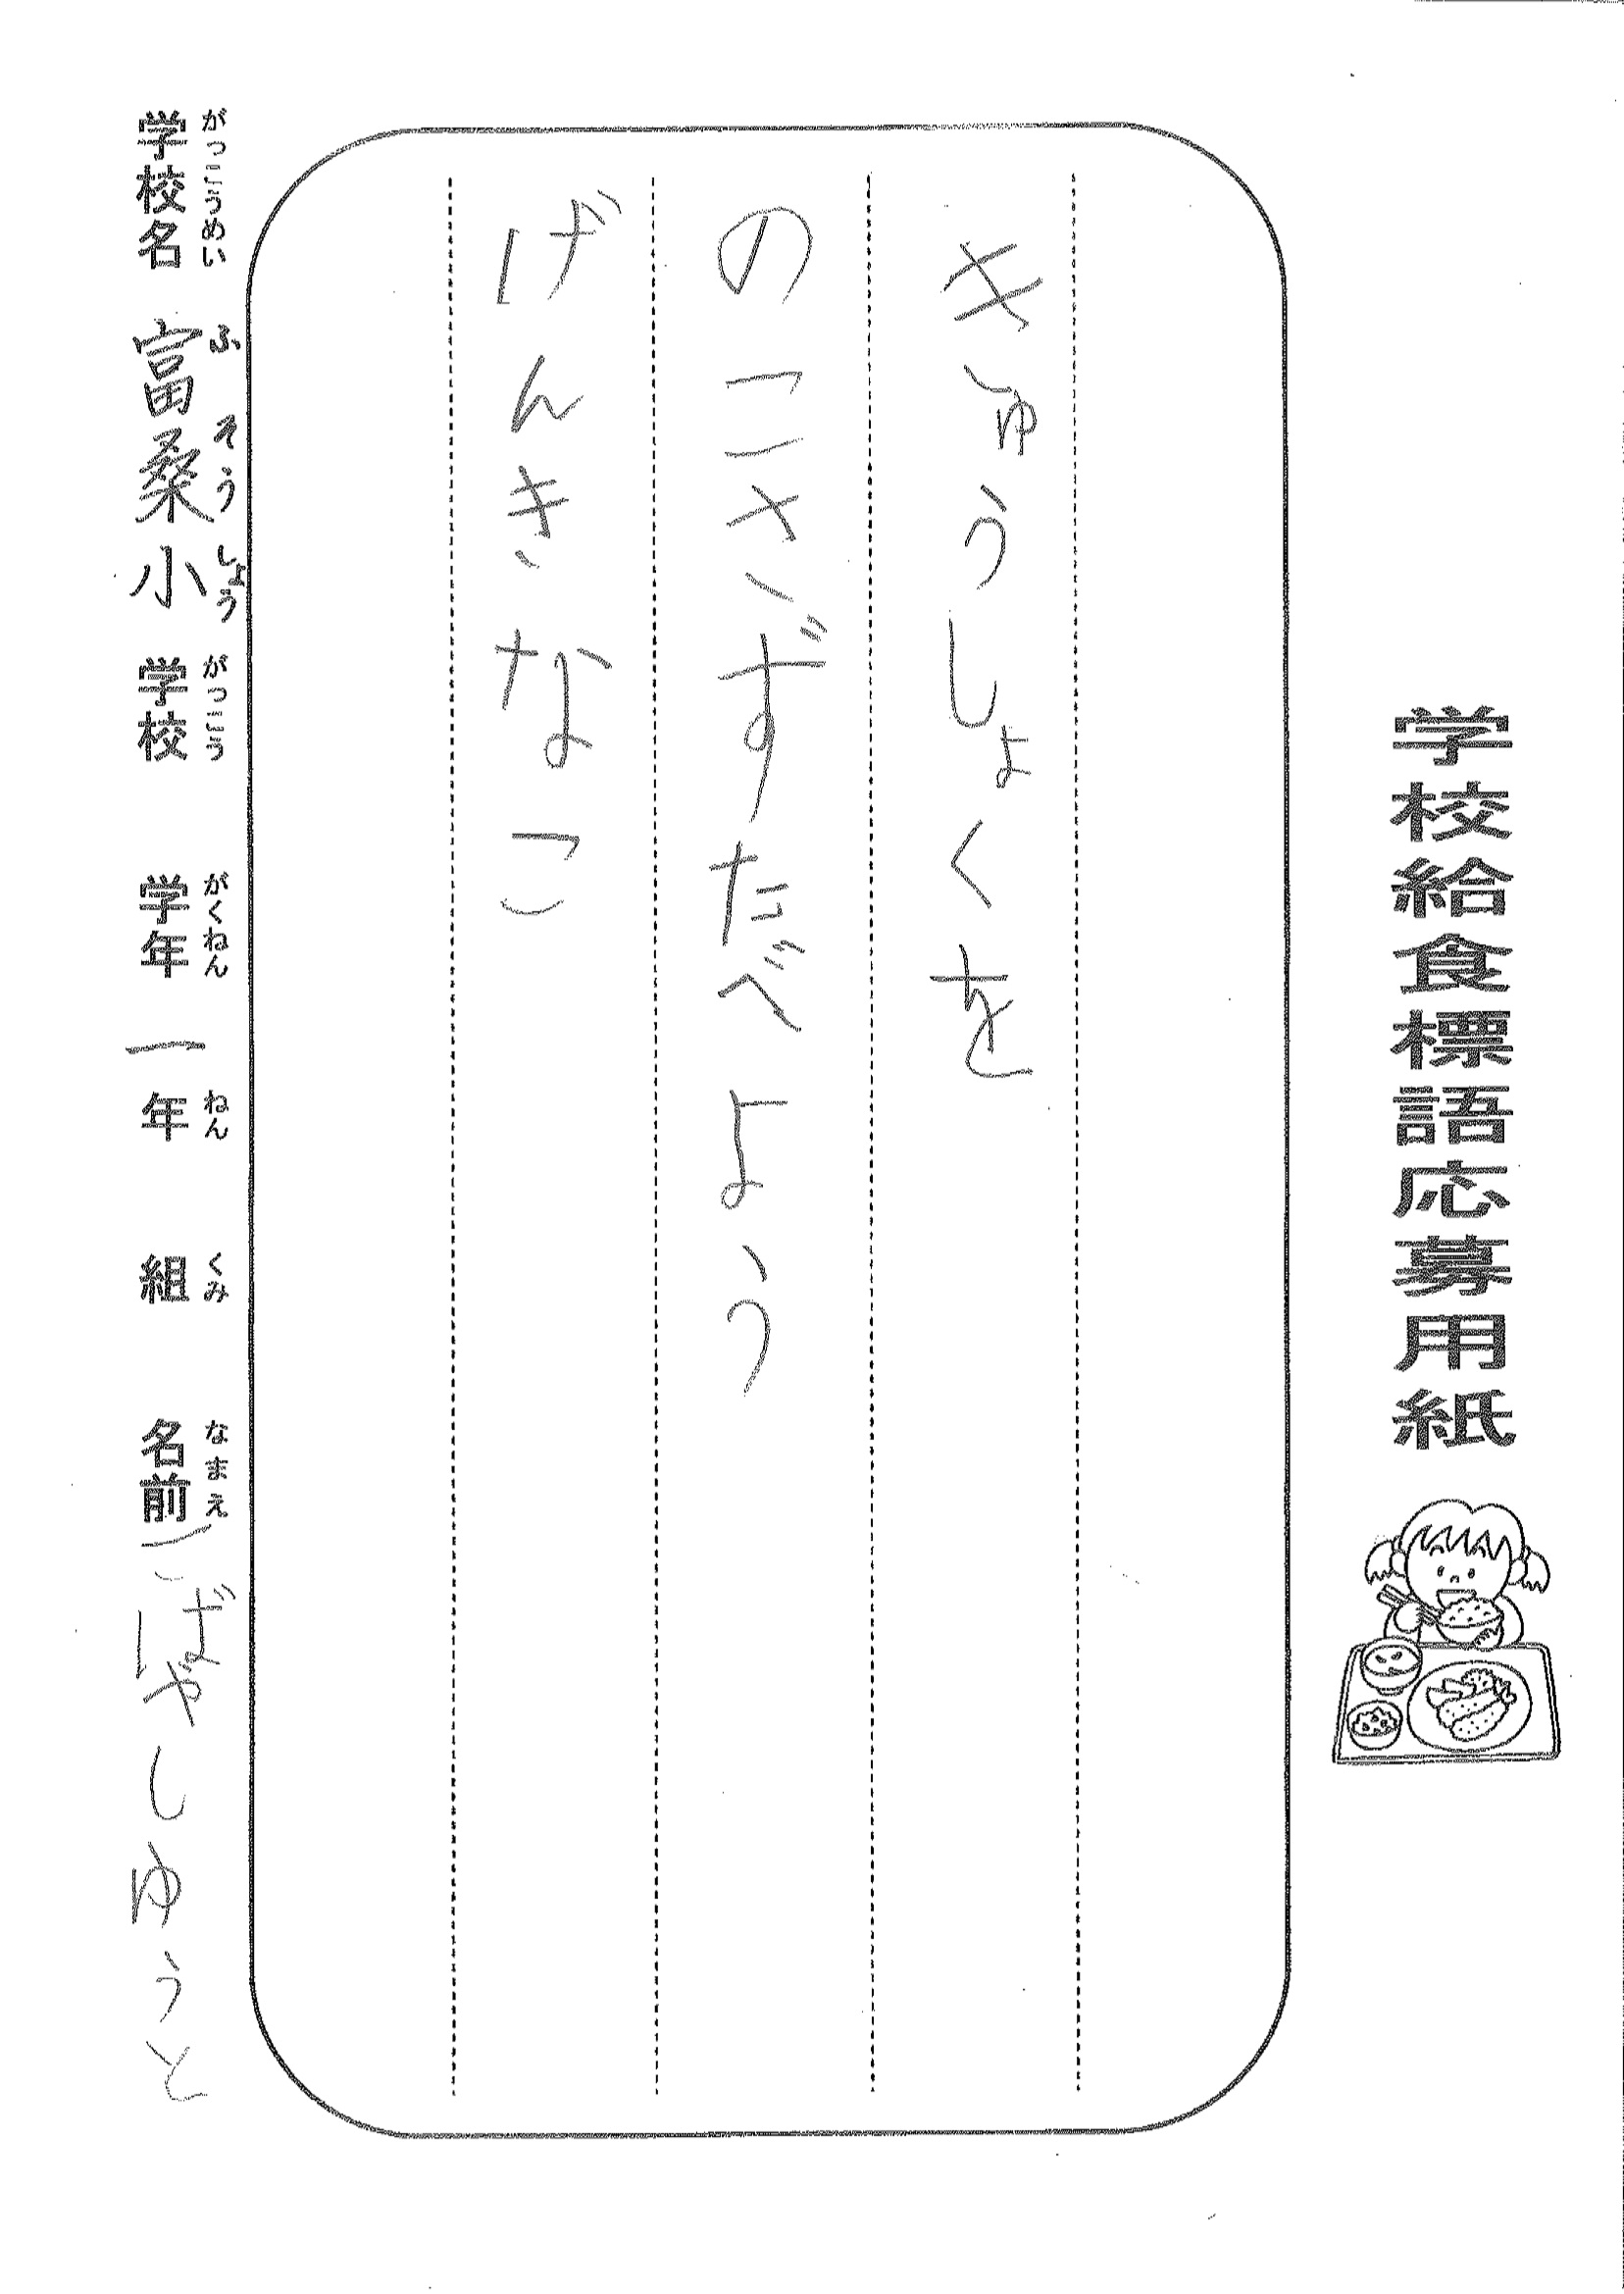 学校給食標語応募用紙
きゅうしょくを
のこさずたべよう
げんきなこ
がっこうめい ふそうしょう がっこう がくねん ねん くみ なまえ
学校名 富桑小 学校 学年 一年 組 名前 こばやしゆうと